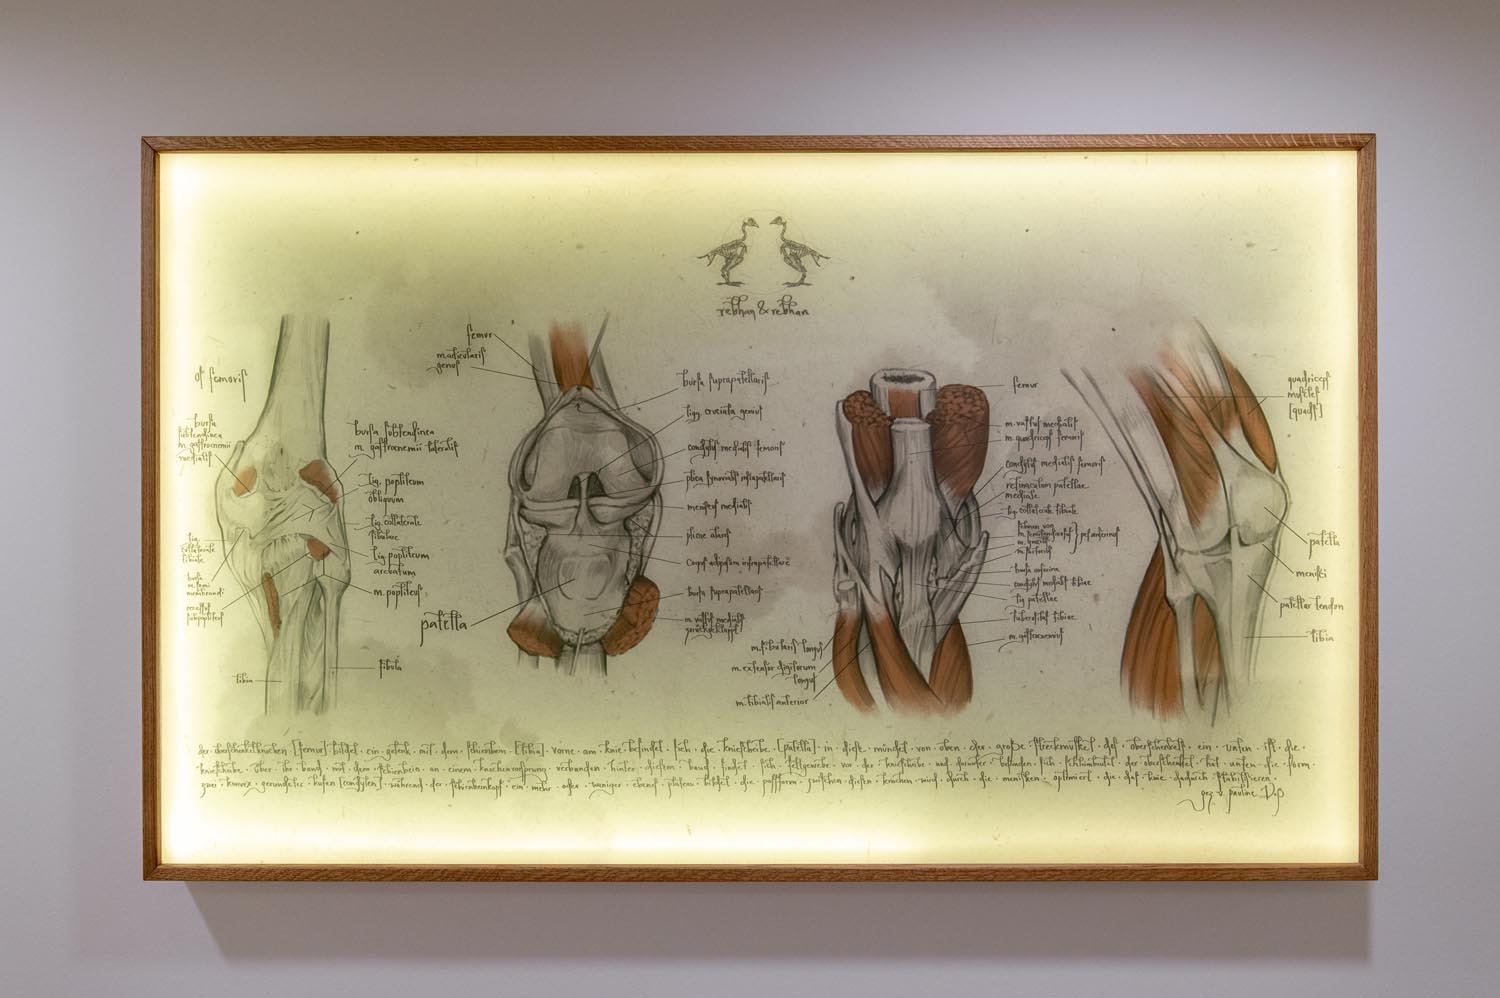 rebhan & rebhan
os femoris
bursa
subtendinea
m. gastrocnemii
medialis
lig.
collaterale
tibiale
bursa
tibia
bursa subtendinea
m. gastrocnemii lateralis
lig. popliteum
obliquum
lig. collaterale
fibulare
lig. popliteum
arcuatum
m. popliteus
fibula
femur
m. articularis
genus
patella
bursa suprapatellaris
ligg. cruciata genus
condylus medialis femoris
plica synovialis infrapatellaris
meniscus medialis
plicae alares
corpus adiposum infrapatellare
bursa suprapatellaris
m. vastus medialis
zurückgeklappt
femur
m. vastus medialis
m. quadriceps femoris
condylus medialis femoris
retinaculum patellae
mediale
lig. collaterale tibiale
pes anserinus
bursa anserina
condylus medialis tibiae
lig. patellae
tuberositas tibiae
m. gastrocnemius
m. fibularis longus
m. extensor digitorum
longus
m. tibialis anterior
quadriceps
muscles
[quads]
patella
menisci
patellar tendon
tibia
der · oberschenkelknochen · [femur] · bildet · ein · gelenk · mit · dem · schienbein · [tibia] · vorne · am · knie · befindet · sich · die · kniescheibe · [patella] · in · diese · mündet · von · oben · der · große · streckmuskel · des · oberschenkels · ein · unten · ist · die ·
kniescheibe · über · ihr · band · mit · dem · schienbein · an · einem · knochenvorsprung · verbunden · hinter · diesem · band · findet · sich · fettgewebe · vor · der · kniescheibe · und · darunter · befinden · sich · schleimbeutel · der · oberschenkel · hat · unten · die · form ·
zwei · konvex · gerundeter · kufen · [condylen] · während · der · schienbeinkopf · ein · mehr · oder · weniger · ebenes · plateau · bildet · die · passform · zwischen · diesen · knochen · wird · durch · die · menisken · optimiert · die · das · knie · dadurch · stabilisieren ·
gez. v. pauline